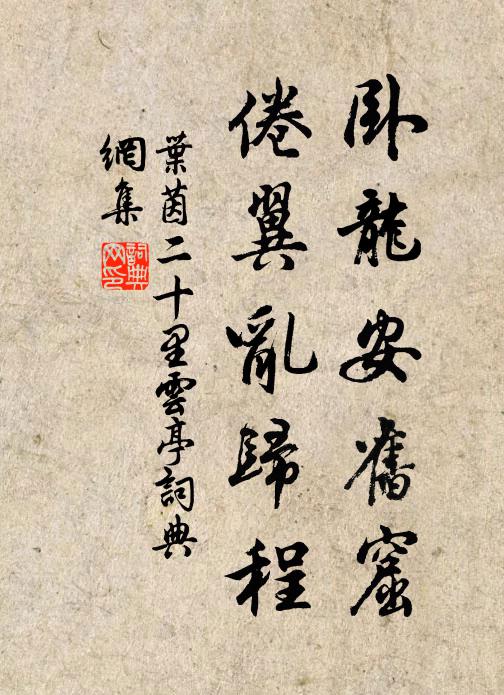 卧龍安舊窟
倦翼亂歸程
葉茵二十里雲亭詞典
網集
詞典网印